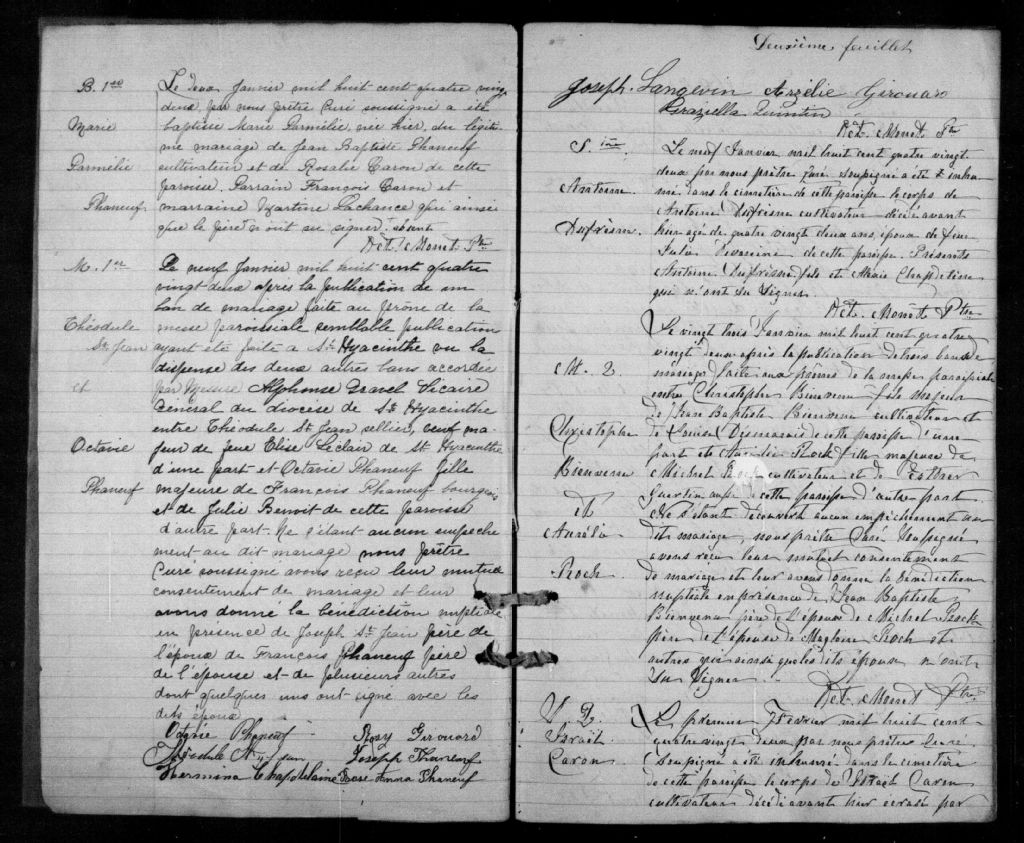 B. 1ere
Le deux Janvier mil huit cent quatre vingt
deux, par nous prêtre Curé soussigné a été
Marie
baptisée Marie Parmélie, née hier, du légiti
me mariage de Jean Baptiste Phaneuf
Parmélie
cultivateur et de Rosalie Caron de cette
paroisse. Parrain François Caron et
Phaneuf
marraine Martine Lachance qui ainsi
que le père n'ont su signer.
Monet Ptre
M. 1er
Le neuf Janvier mil huit cent quatre
vingt deux après la publication de un
ban de mariage faite au prône de la
Théodule
messe paroissiale semblable publication
St. Jean
ayant été faite à St. Hyacinthe vu la
dispense des deux autres bans accordée
et
par Messire Alphonse Gravel Vicaire
Général du diocèse de St. Hyacinthe
entre Théodule St. Jean sellier, veuf ma-
Octavie
jeur de feue Elise Leclair de St. Hyacinthe
d'une part et Octavie Phaneuf fille
Phaneuf
majeure de François Phaneuf bourgeois
et de Julie Benoit de cette paroisse
d'autre part. Ne s'étant aucun empeche
ment au dit mariage nous prêtre
Curé soussigné avons reçu leur mutuel
consentement de mariage et leur
avons donné la bénédiction nuptiale
en présence de Joseph St. Jean père de
l'époux de François Phaneuf père
de l'épouse et de plusieurs autres
dont quelques uns ont signé avec les
dits époux
Octavie Phaneuf Rosy Girouard
Théodule St. Jean Joseph
Hermina Chapdelaine Rose Anna Phaneuf
Deuxième feuillet
Joseph Langevin Arzélie Girouard
Graziella Quintin
Monet Ptre
S. 1ère
Le neuf Janvier mil huit cent quatre vingt
deux par nous prêtre Curé soussigné a été inhu-
Antoine
mé dans le cimetière de cette paroisse le corps de
Antoine Dufresne cultivateur décédé avant
Dufresne
hier agé de quatre vingt deux ans, époux de feue
Julie de cette paroisse. Présents
Antoine Dufresne fils et Chapdelaine
qui n'ont su signer.
Monet Ptre
Le vingt trois Janvier mil huit cent quatre
vingt deux après la publication de trois bans de
M. 2
mariage faite aux prônes de la messe paroissiale
entre Christophe Bienvenu fils majeur
de Jean Baptiste Bienvenu cultivateur et
Christophe
de Louise Desmarais de cette paroisse d'une
part et Aurélie Rock fille majeure de
Bienvenu
Michel Rock cultivateur et de Esther
Guertin aussi de cette paroisse d'autre part.
et
Ne s'étant découvert aucun empêchement au
Aurélie
dit mariage, nous prêtre Curé soussigné
avons reçu leur mutuel consentement
Roch
de mariage et leur avons donné la bénédiction
nuptiale en présence de Jean Baptiste
Bienvenu père de l'époux de Michel Rock
père de l'épouse de Magloire Roch et
autres qui ainsi que les dits époux n'ont
su signer.
Monet Ptre
S. 2.
Le premier Février mil huit cent
Israël
quatre vingt deux par nous prêtre curé
Caron
soussigné a été inhumé dans le cimetière
de cette paroisse le corps de Israël Caron
cultivateur décédé avant hier écrasé par